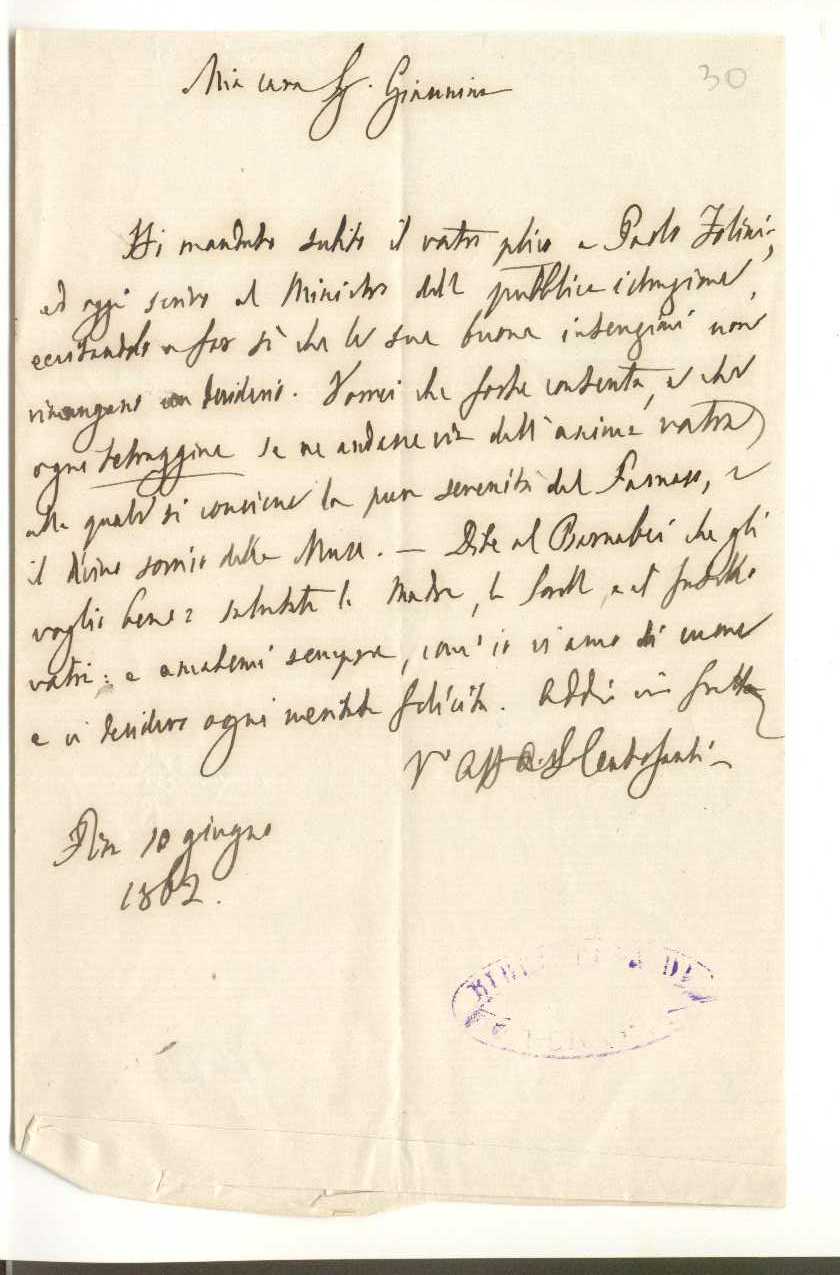 30
Mia cara Sig. Giannina
Ho mandato subito il vostro plico a Paolo
ed oggi scrivo al Ministro della pubblica istruzione,
eccitandolo a far sì che le sue buone intenzioni non
rimangano un desiderio. Vorrei che foste contenta, e che
ogni tetraggine se ne andasse via dall'anima vostra
alla quale si conviene la pura serenità del Parnaso, e
il divino sorriso delle Muse. — Dite al Barnabei che gli
voglio bene: salutate la Madre, la Sorella, e il fratello
vostri: e amatemi sempre, com'io vi amo di cuore
e vi desidero ogni meritata felicità. Addio in fretta
V° Aff Centofanti
10 giugno
1862.